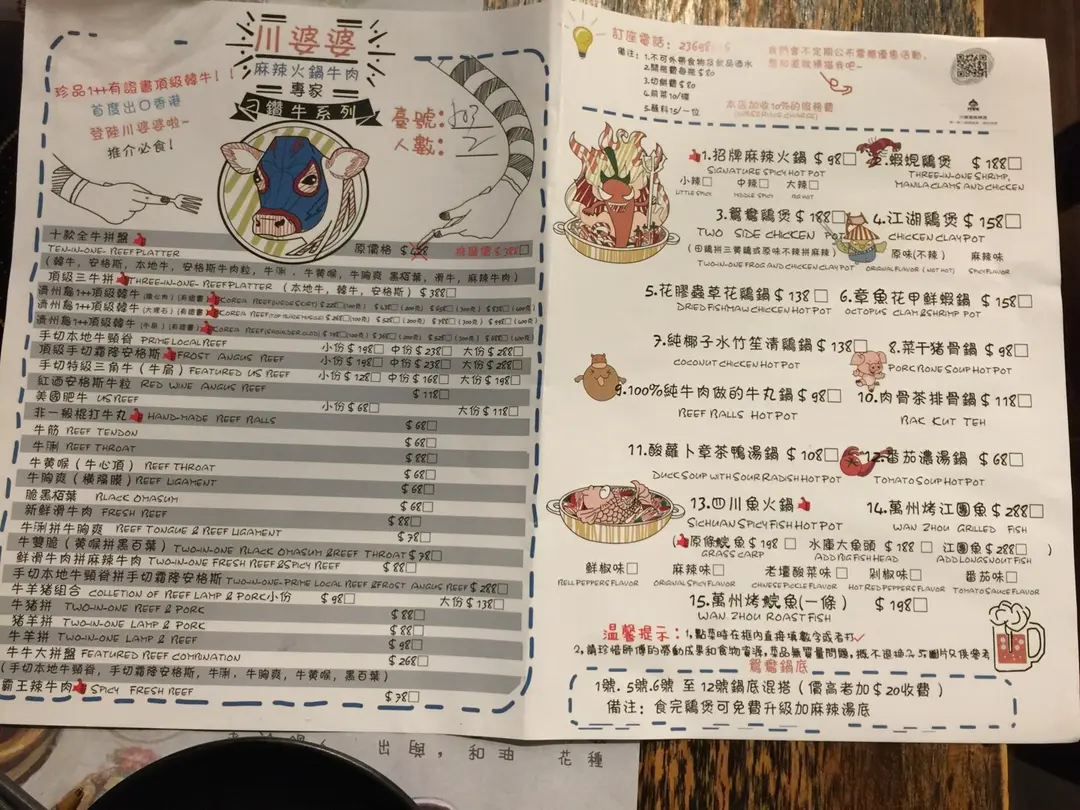 川婆婆
麻辣火鍋牛肉
專家
刁鑽牛系列
珍品1++有證書頂級韓牛!!
首度出口香港
登陸川婆婆啦~
推介必食!
臺號:
人數: 2
十款全牛拼盤
TEN-IN-ONE-BEEF PLATTER 原價格
(韓牛, 安格斯, 本地牛, 安格斯牛肉粒, 牛𦟌, 牛黃喉, 牛胸爽 黑栢葉, 滑牛, 麻辣牛肉)
頂級三牛拼 THREE-IN-ONE-BEEF PLATTER (本地牛, 韓牛, 安格斯) $388□
濟州島1++頂級韓牛
濟州島1++頂級韓牛
濟州島1++頂級韓牛
手切本地牛頸脊 PRIME LOCAL BEEF 小份 $198□ 中份 $238□ 大份 $288□
頂級手切霜降安格斯 FROST ANGUS BEEF 小份 $198□ 中份 $238□ 大份 $288□
手切特級三角牛 (牛肩) FEATURED US BEEF 小份 $128□ 中份 $168□ 大份 $198□
紅酒安格斯牛粒 RED WINE ANGUS BEEF $118□
美國肥牛 US BEEF 小份 $68□ 大份 $118□
非一般棍打牛丸 HAND-MADE BEEF BALLS $68□
牛筋 BEEF TENDON $68□
牛𦟌 BEEF THROAT $88□
牛黃喉 (牛心頂) BEEF THROAT $68□
牛胸爽 (橫隔膜) BEEF LIGAMENT $68□
脆黑栢葉 BLACK OMASUM $68□
新鮮滑牛肉 FRESH BEEF $88□
牛𦟌拼牛胸爽 BEEF TONGUE & BEEF LIGAMENT $78□
牛雙脆 (黃喉拼黑百葉) TWO-IN-ONE BLACK OMASUM & BEEF THROAT $78□
鮮滑牛肉拼麻辣牛肉 TWO-IN-ONE FRESH BEEF & SPICY BEEF $88□
手切本地牛頸脊拼手切霜降安格斯 TWO-IN-ONE-PRIME LOCAL BEEF & FROST ANGUS BEEF $288□
牛羊豬組合 COLLETION OF BEEF LAMP & PORK 小份 $98□ 大份 $138□
牛豬拼 TWO-IN-ONE BEEF & PORK $88□
豬羊拼 TWO-IN-ONE LAMP & PORK $88□
牛羊拼 TWO-IN-ONE LAMP & BEEF $98□
牛牛大拼盤 FEATURED BEEF COMBINATION $268□
(手切本地牛頸脊, 手切霜降安格斯, 牛𦟌, 牛胸爽, 牛黃喉, 黑百葉)
霸王辣牛肉 SPICY FRESH BEEF $78□
訂座電話: 23698
備注: 1.不可外帶食物及飲品酒水
2.開瓶費每瓶 $80
3.切餅費 $80
4.前菜10/碟
5.蘸料15/一位
我們會不定期公布震撼優惠活動,
想知道就掃描我吧~
本店加收10%的服務費
1.招牌麻辣火鍋 $98□
SIGNATURE SPICY HOT POT
小辣□ 中辣□ 大辣□
LITTLE SPICY MIDDLE SPICY BIG HOT
2.蝦蜆鷄煲 $188□
THREE-IN-ONE SHRIMP,
MANLA CLAMS AND CHICKEN
3.鴛鴦鷄煲 $188□
TWO SIDE CHICKEN POT
(田鷄拼三黃鷄或原味不辣拼麻辣)
TWO-IN-ONE FROG AND CHICKEN CLAY POT
4.江湖鷄煲 $158□
CHICKEN CLAY POT
原味(不辣) 麻辣味
ORIGINAL FLAVOR (NOT HOT) SPICY FLAVOR
5.花膠蟲草花鷄鍋 $138□
DRIED FISH MAW CHICKEN HOT POT
6.章魚花甲鮮蝦鍋 $158□
OCTOPUS CLAM & SHRIMP POT
7.純椰子水竹笙清鷄鍋 $138□
COCONUT CHICKEN HOT POT
8.菜干豬骨鍋 $98□
PORK BONE SOUP HOT POT
9.100%純牛肉做的牛丸鍋 $98□
BEEF BALLS HOT POT
10.肉骨茶排骨鍋 $118□
BAK KUT TEH
11.酸蘿卜章茶鴨湯鍋 $108□
DUCK SOUP WITH SOUR RADISH HOT POT
12.番茄濃湯鍋 $68□
TOMATO SOUP HOT POT
13.四川魚火鍋
SICHUAN SPICY FISH HOT POT
14.萬州烤江團魚 $288□
WAN ZHOU GRILLED FISH
(原條鯇魚 $198□ 水庫大魚頭 $188□ 江團魚 $288□ )
GRASS CARP ADD BIG FISH HEAD ADD LONG SNOUT FISH
鮮椒味□ 麻辣味□ 老壇酸菜味□ 剁椒味□ 番茄味□
BELL PEPPERS FLAVOR ORIGINAL SPICY FLAVOR CHINESE PICKLE FLAVOR HOT RED PEPPERS FLAVOR TOMATO SAUCE FLAVOR
15.萬州烤鯇魚(一條) $198□
WAN ZHOU ROAST FISH
溫馨提示: 1,點菜時在框內直接填數字或者打✓
2,請珍惜師傅的勞動成果和食物資源,菜品無質量問題,概不退換
鴛鴦鍋底
1號. 5號.6號 至 12號鍋底混搭 (價高者加$20收費)
備注: 食完鷄煲可免費升級加麻辣湯底
出與, 和油 花種